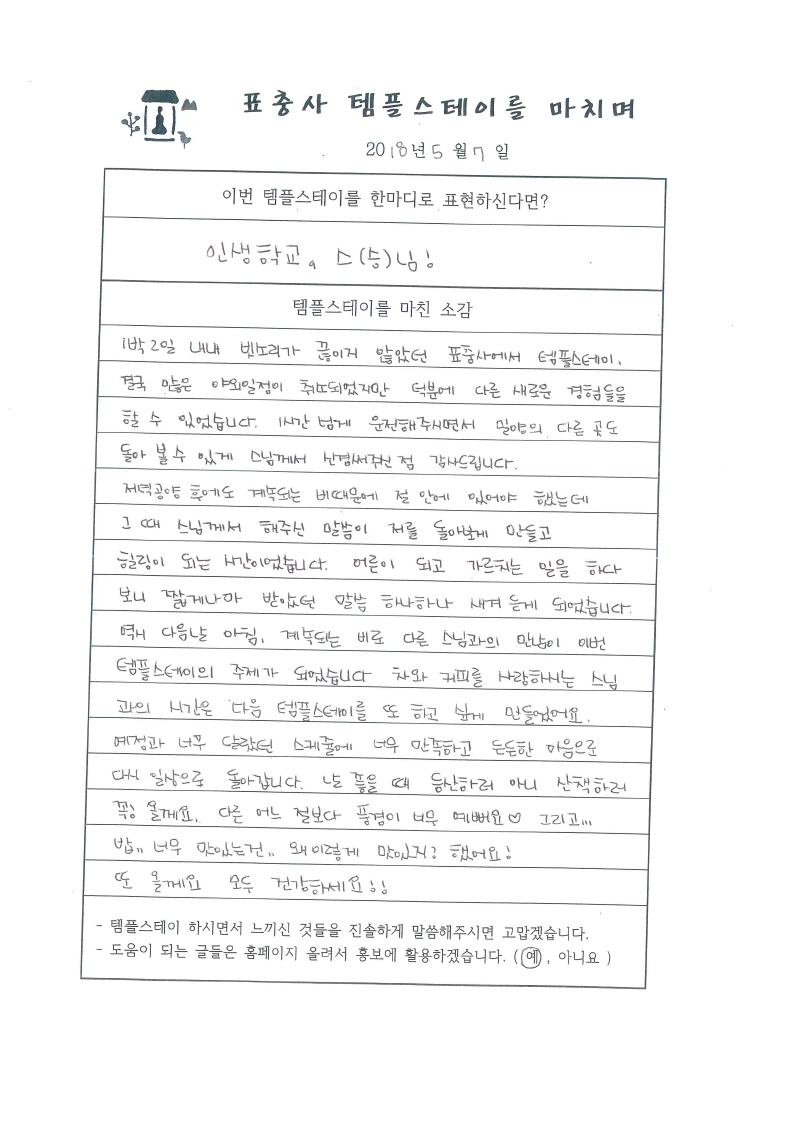 표충사 템플스테이를 마치며
2018년 5월 7일
이번 템플스테이를 한마디로 표현하신다면?
인생학교. 스(승)님!
템플스테이를 마친 소감
1박2일 내내 빗소리가 끊이지 않았던 표충사에서 템플스테이.
결국 많은 야외일정이 취소되었지만 덕분에 다른 새로운 경험들을
할 수 있었습니다. 1시간 넘게 운전해주시면서 밀양의 다른 곳도
돌아 볼 수 있게 스님께서 신경써주신 점 감사드립니다.
저녁공양 후에도 계속되는 비때문에 절 안에 있어야 했는데
그 때 스님께서 해주신 말씀이 저를 돌아보게 만들고
힐링이 되는 시간이었습니다. 어른이 되고 가르치는 일을 하다
보니 짧게나마 받았던 말씀 하나하나 새겨 듣게 되었습니다.
역시 다음날 아침, 계속되는 비로 다른 스님과의 만남이 이번
템플스테이의 주제가 되었습니다 차와 커피를 사랑하시는 스님
과의 시간은 다음 템플스테이를 또 하고 싶게 만들었어요.
예정과 너무 달랐던 스케줄에 너무 만족하고 든든한 마음으로
다시 일상으로 돌아갑니다. 날 좋을 때 등산하러 아니 산책하러
꼭! 올게요. 다른 어느 절보다 풍경이 너무 예뻐요♡ 그리고...
밥,, 너무 맛있는건,, 왜이렇게 맛있지? 했어요!
또 올게요 모두 건강하세요!!
- 템플스테이 하시면서 느끼신 것들을 진솔하게 말씀해주시면 고맙겠습니다.
- 도움이 되는 글들은 홈페이지 올려서 홍보에 활용하겠습니다. ( 예 , 아니요 )